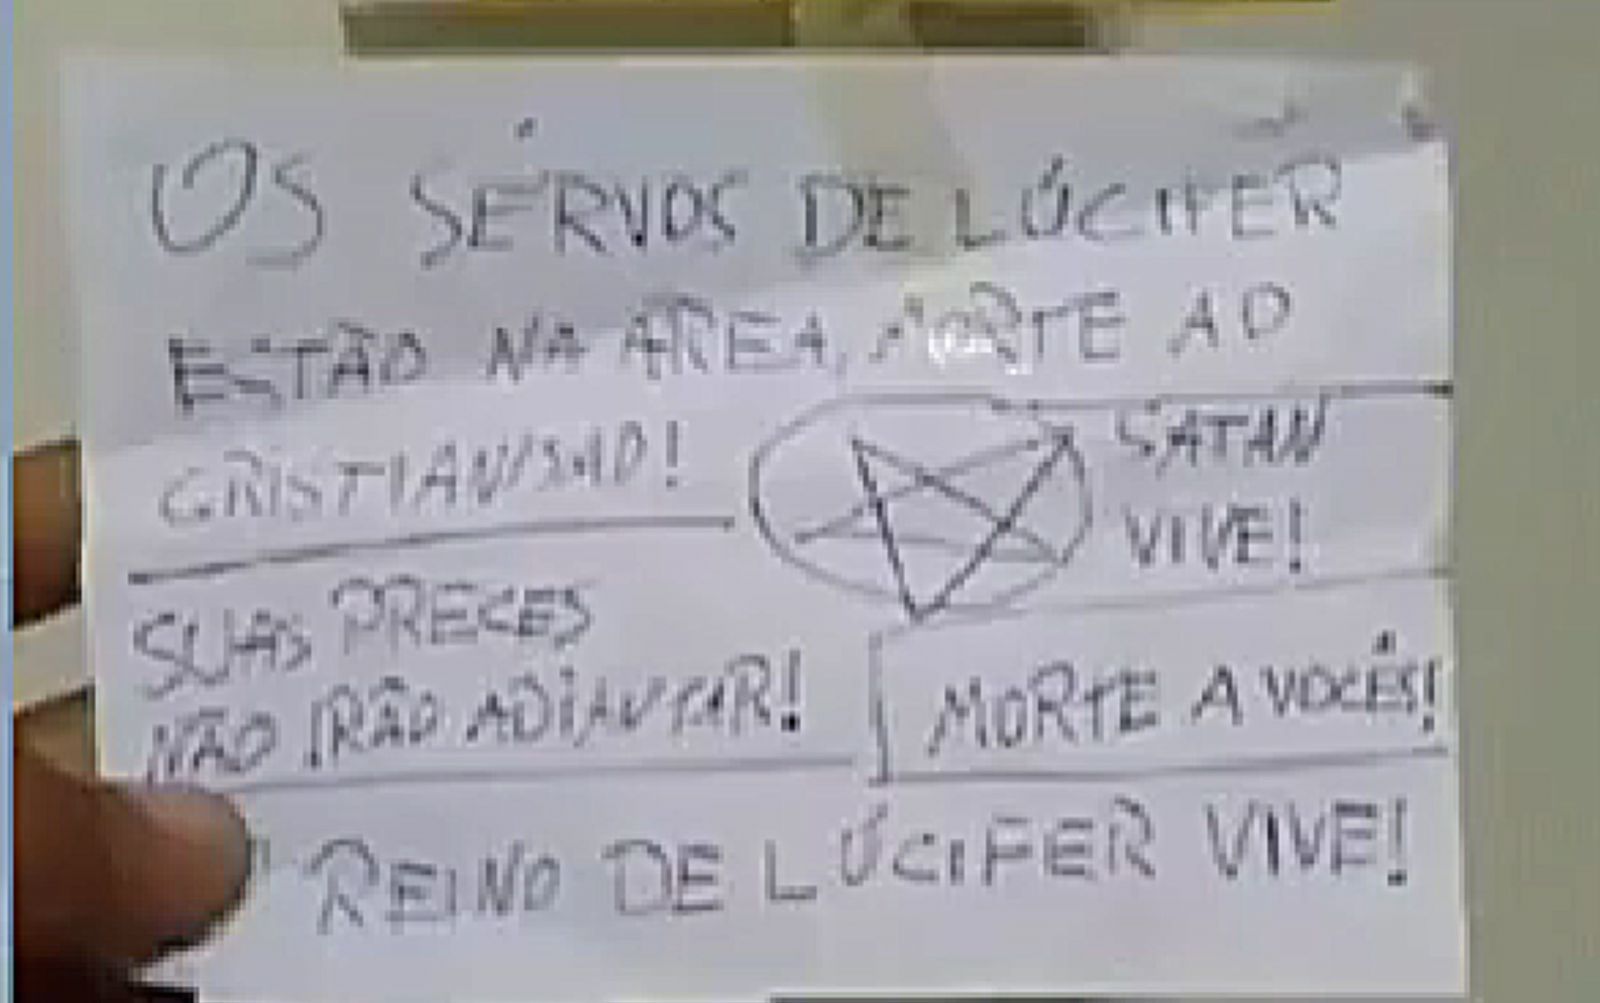 OS SERVOS DE LÚCIFER
ESTÃO NA AREA, MORTE AO
CRISTIANISMO!
SATAN
VIVE!
SUAS PRECES
NÃO IRÃO ADIANTAR!
MORTE A VOCÊS!
REINO DE LÚCIFER VIVE!